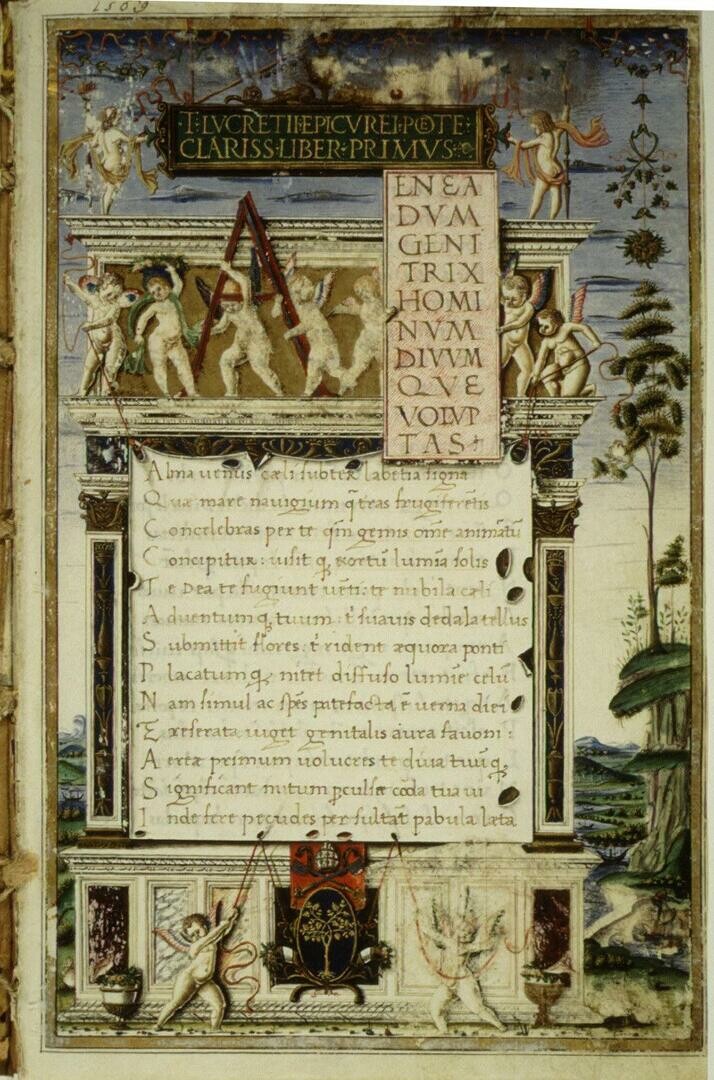 15 0 9
T·LVCRETII·EPICVREI·POETE·
CLARISS·LIBER·PRIMVS·
A
ENEA
DVM
GENI
TRIX
HOMI
NVM
DIVVM
QVE
VOLVP
TAS
Alma uenus cæli subter labētia signa
Quæ mare nauigium q̃ teras frugiferētis
Concelebras per te qm̄ genus om̄e animātū
Concipitur: uisit q; exortū lumīa solis
Te Dea te fugiunt uēti: te nubila cæli
Aduentum q; tuum: t̄ suauis dedala tellus
Submittit flores: t̄ rident æquora ponti
Placatum q; nitet diffuso lumīe celū
Nam simul ac spēs patefacta ē uerna diei
Et reserata uiget genitalis aura fauoni:
Aereæ primum uolucres te diua tuū q;
Significant initum ꝑculsæ corda tua ui
Inde fere pecudes per sultāt pabula læta